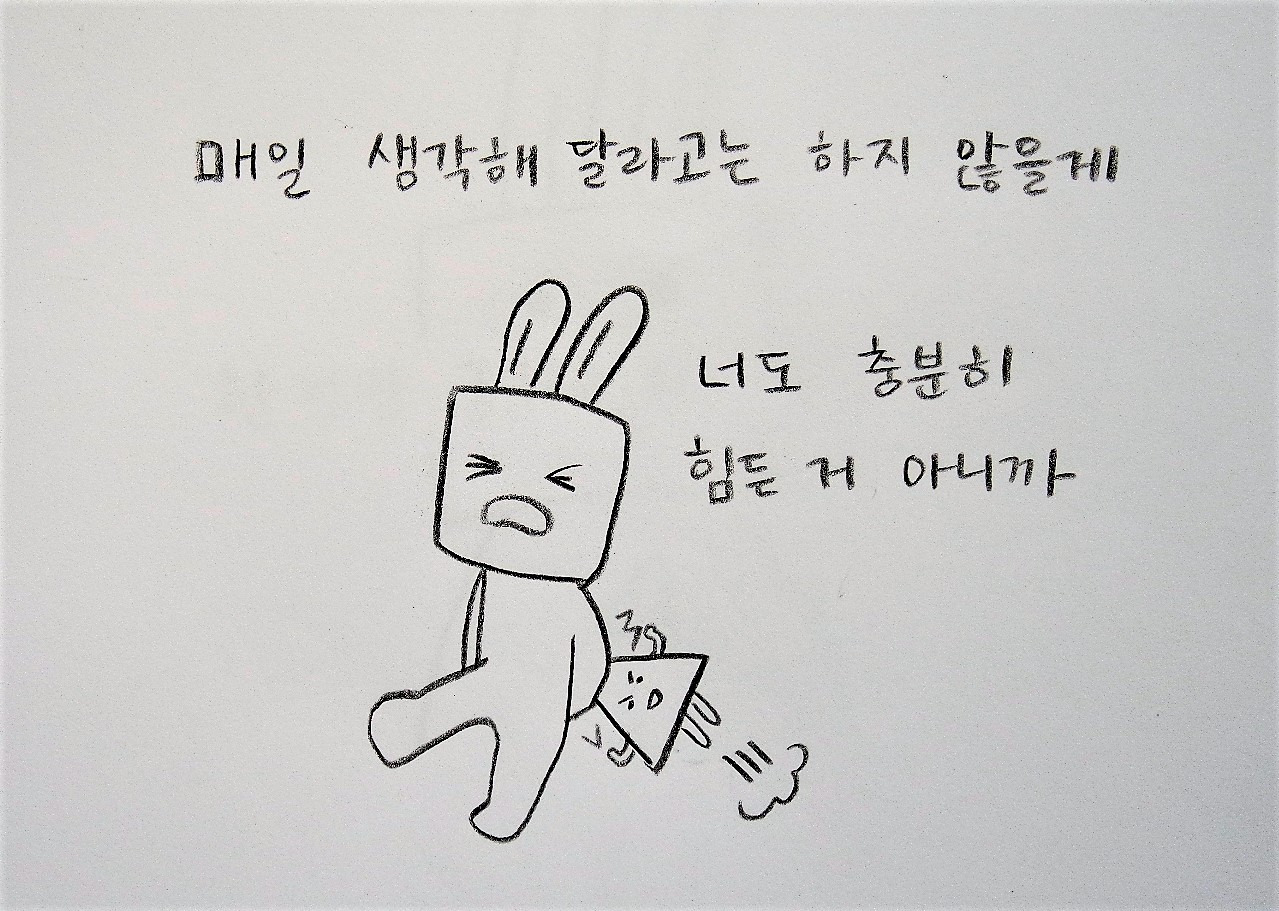 매일 생각해 달라고는 하지 않을게
너도 충분히
힘든 거 아니까